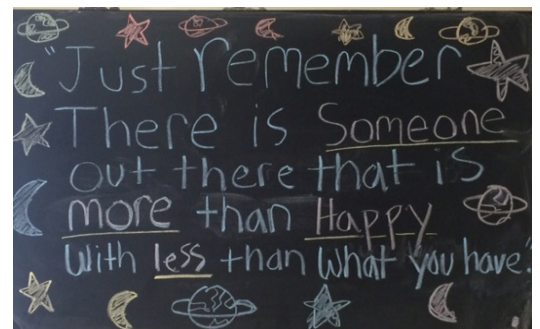 "Just remember
There is Someone
out there that is
more than Happy
With less than What you have."